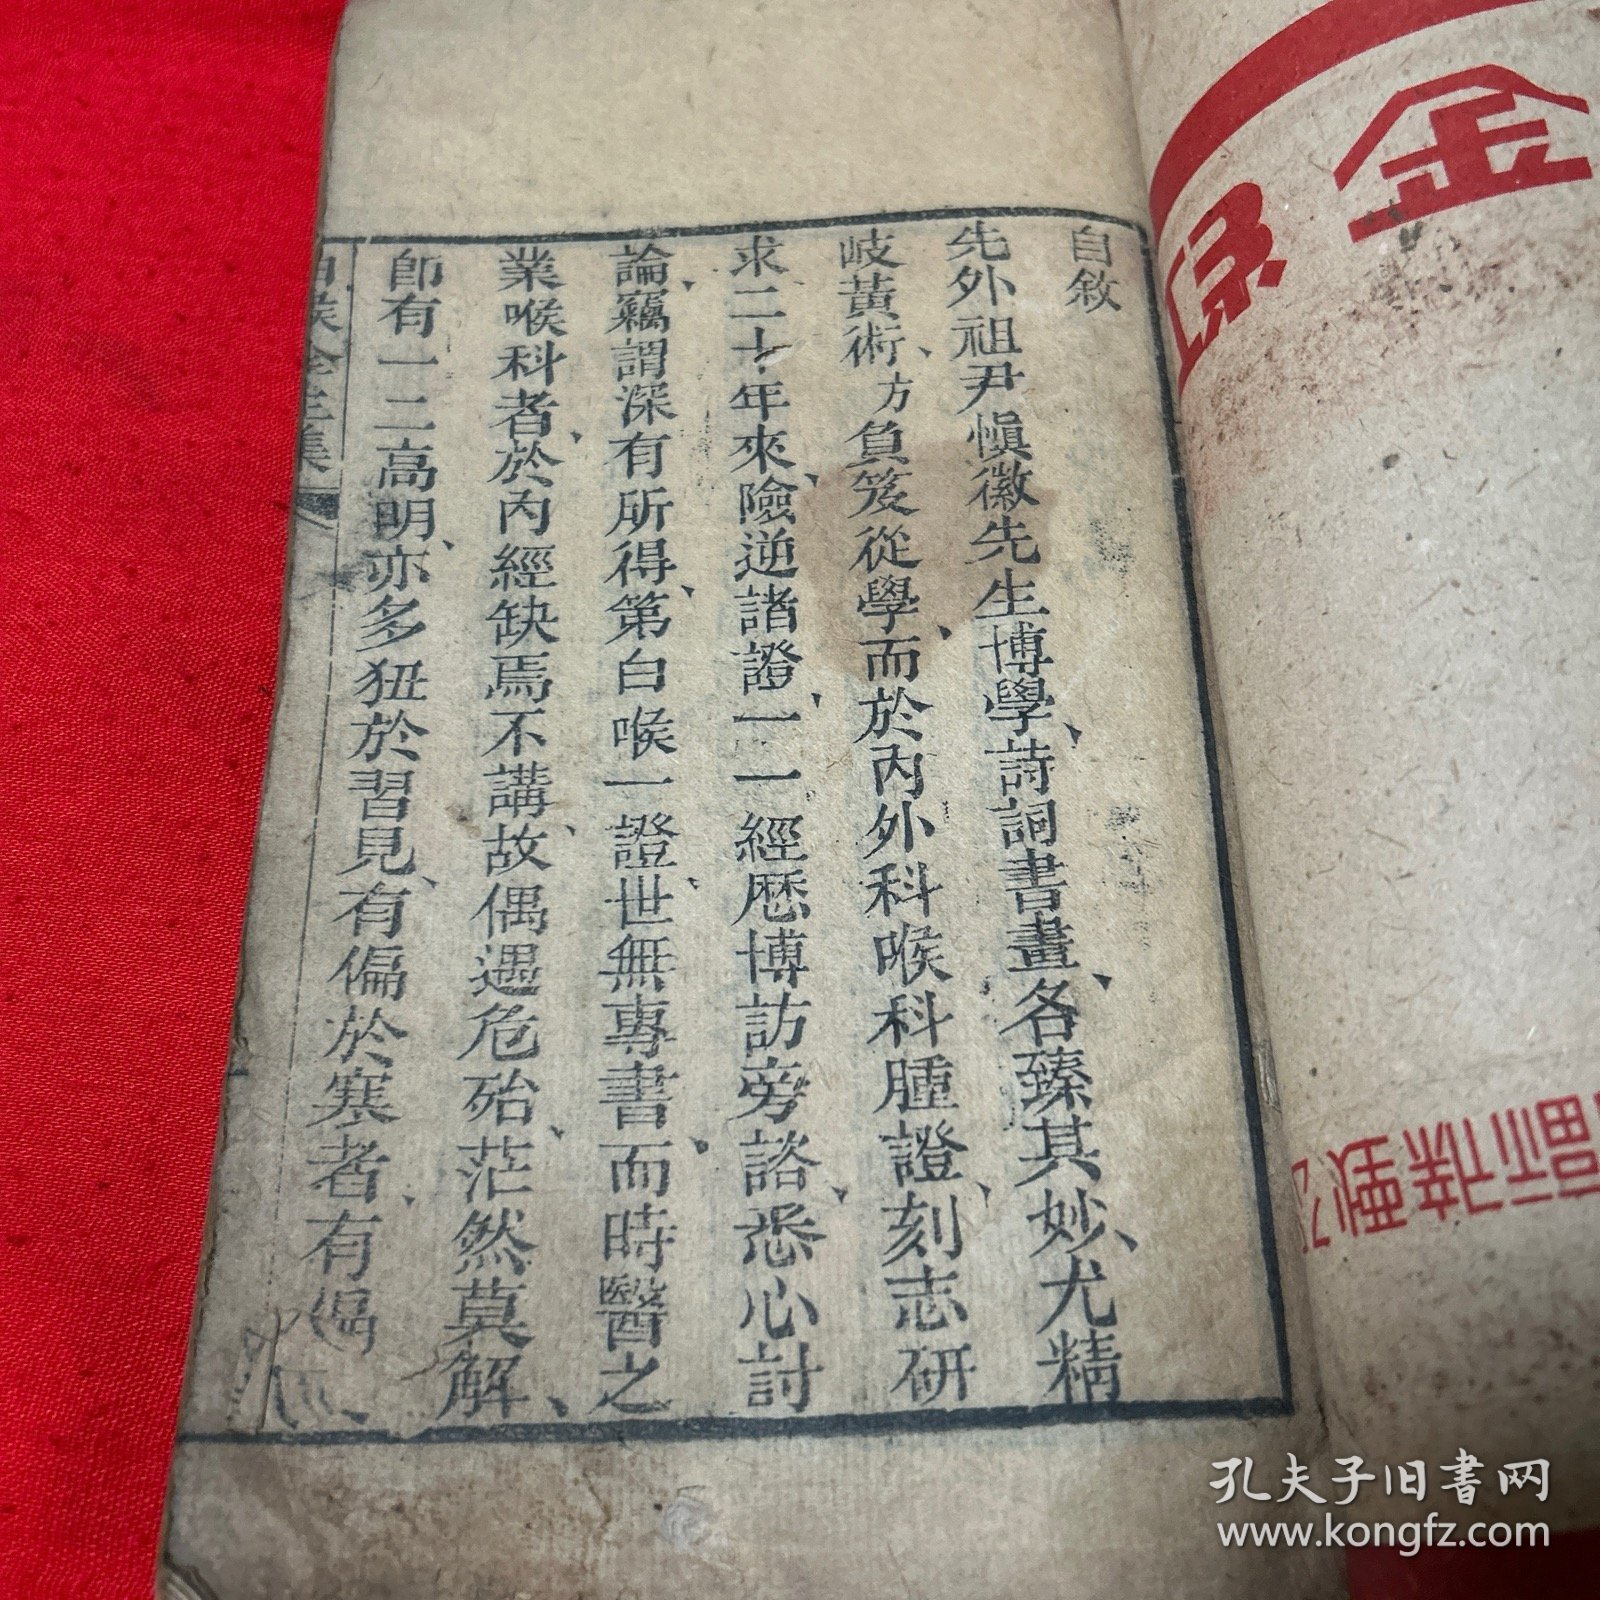 自敘
先外祖尹慎徽先生博學、詩詞書畫、各臻其妙、尤精
岐黃術、方負笈從學、而於內外科喉科腫證、刻志研
求二十年來、險逆諸證、一一經歷博訪旁諮、悉心討
論、竊謂深有所得、第白喉一證、世無專書、而時醫之
業喉科者、於內經缺焉不講、故偶遇危殆、茫然莫解、
卽有一二高明、亦多狃於習見、有偏於寒者、有偏
白喉全生集
金
孔夫子旧书网
www.kongfz.com